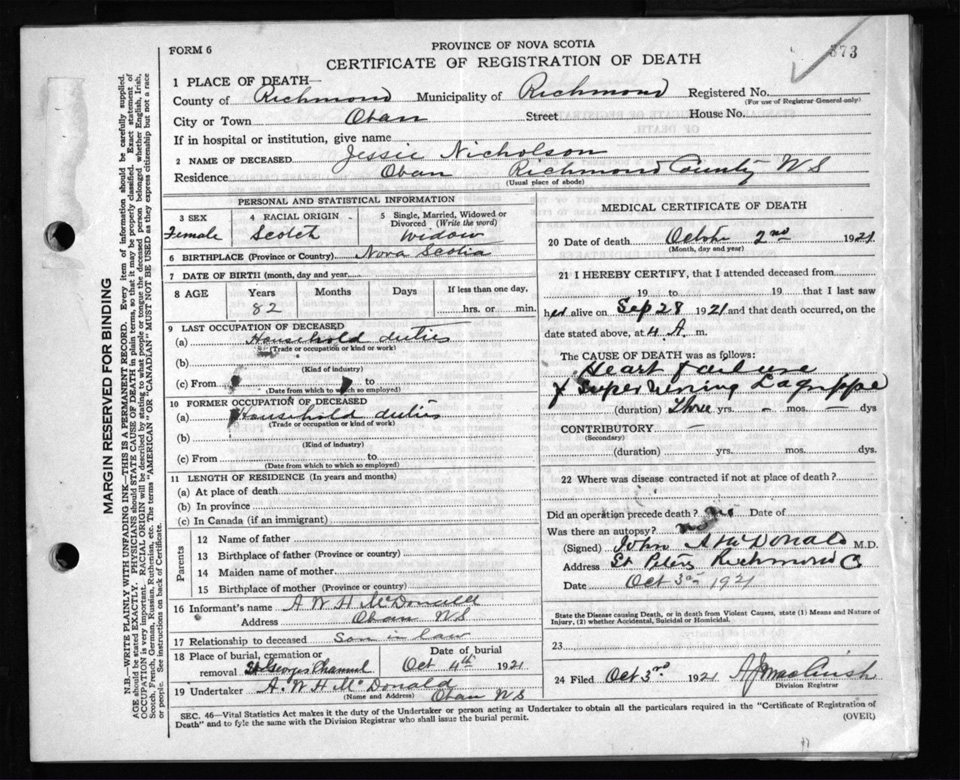 FORM 6
PROVINCE OF NOVA SCOTIA
373
CERTIFICATE OF REGISTRATION OF DEATH
1 PLACE OF DEATH—
County of Richmond Municipality of Richmond Registered No.
(For use of Registrar General only)
City or Town Oban Street House No.
If in hospital or institution, give name
2 NAME OF DECEASED Jessie Nicholson
Residence Oban Richmond County NS
(Usual place of abode)
PERSONAL AND STATISTICAL INFORMATION
3 SEX 4 RACIAL ORIGIN 5 Single, Married, Widowed or Divorced (Write the word)
Female Scotch Widow
6 BIRTHPLACE (Province or Country) Nova Scotia
7 DATE OF BIRTH (month, day and year)
8 AGE Years Months Days If less than one day,
82 hrs. or min.
9 LAST OCCUPATION OF DECEASED
(a) Household duties
(Trade or occupation or kind of work)
(b)
(Kind of industry)
(c) From to
(Date from which to which so employed)
10 FORMER OCCUPATION OF DECEASED
(a) Household duties
(Trade or occupation or kind of work)
(b)
(Kind of industry)
(c) From to
(Date from which to which so employed)
11 LENGTH OF RESIDENCE (In years and months)
(a) At place of death
(b) In province
(c) In Canada (if an immigrant)
Parents
12 Name of father
13 Birthplace of father (Province or country)
14 Maiden name of mother
15 Birthplace of mother (Province or country)
16 Informant's name A W H McDonald
Address Oban NS
17 Relationship to deceased Son in law
18 Place of burial, cremation or removal St Georges Channel Date of burial Oct 4th 1921
19 Undertaker A. W H McDonald
(Name and Address) Oban NS
MEDICAL CERTIFICATE OF DEATH
20 Date of death October 2nd 1921
(Month, day and year)
21 I HEREBY CERTIFY, that I attended deceased from
19 to 19 that I last saw
her alive on Sep 28 1921 and that death occurred, on
date stated above, at 4 A. m.
The CAUSE OF DEATH was as follows:
Heart Failure
Lagrippe
(duration) Three yrs. – mos. – dys
CONTRIBUTORY –
(Secondary)
(duration) yrs. mos. dys.
22 Where was disease contracted if not at place of death?
Did an operation precede death? No Date of
Was there an autopsy? no
(Signed) John A McDonald M.D.
Address St Peters Richmond C
Date Oct 3rd 1921
State the Disease causing Death, or in death from Violent Causes, state (1) Means and Nature of
Injury, (2) whether Accidental, Suicidal or Homicidal.
23
24 Filed Oct 3rd 1921
Division Registrar
SEC. 46—Vital Statistics Act makes it the duty of the Undertaker or person acting as Undertaker to obtain all the particulars required in the "Certificate of Registration of
Death" and to file the same with the Division Registrar who shall issue the burial permit.
(OVER)
MARGIN RESERVED FOR BINDING
N.B.—WRITE PLAINLY WITH UNFADING INK—THIS IS A PERMANENT RECORD. Every item of information should be carefully supplied.
AGE should be stated EXACTLY. PHYSICIANS should STATE CAUSE OF DEATH in plain terms, so that it may be properly classified. Exact statement of
OCCUPATION is very important. RACIAL ORIGIN will be described by stating to what people or tongue the deceased person belonged whether English, Irish,
Scotch, French, German, Russian, Ruthenian, etc. The terms "AMERICAN" or "CANADIAN" MUST NOT BE USED as they express citizenship but not a race
or people. See instructions on back of Certificate.